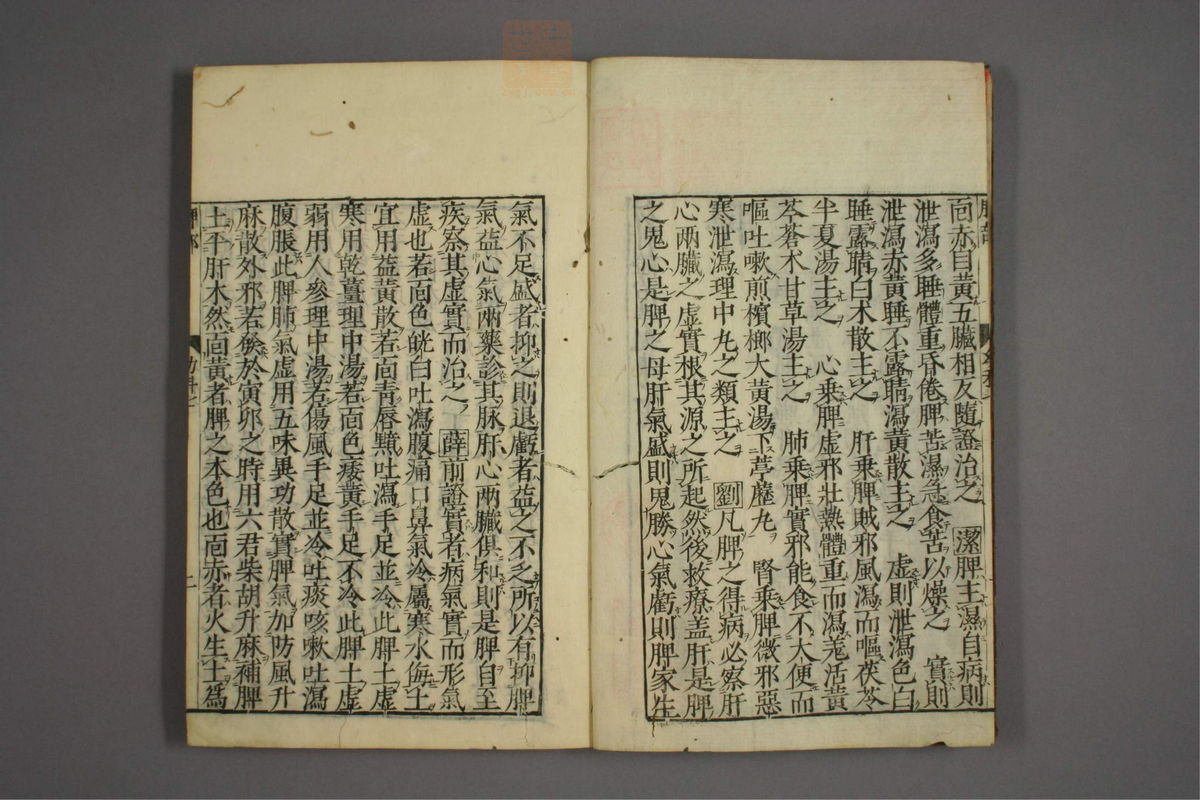 面赤目黃五臟相反隨證治之　潔脾主濕自病則
泄瀉多睡體重昏倦脾苦濕急食苦以燥之　實則
泄瀉赤黃睡不露睛瀉黃散主之　虛則泄瀉色白
睡露睛白朮散主之　肝乘脾賊邪風瀉而嘔茯苓
半夏湯主之　心乘脾虛邪壯熱體重而瀉羗活黃
芩蒼朮甘草湯主之　肺乘脾實邪能食不大便而
嘔吐嗽煎檳榔大黃湯下葶藶丸　腎乘脾微邪惡
寒泄瀉理中丸之類主之　劉凡脾之得病必察肝
心兩臟之虛實根其源之所起然後救療盖肝是脾
之鬼心是脾之母肝氣盛則鬼勝心氣虧則脾家生
氣不足盛者抑之則退虧者益之不乏所以有抑脾
氣益心氣兩藥診其脉肝心兩臟俱和則是脾自至
疾察其虛實而治之　薛前證實者病氣實而形氣
虛也若面色㿠白吐瀉腹痛口鼻氣冷屬寒水侮土
宜用益黃散若面靑唇黯吐瀉手足並冷此脾土虛
寒用乾薑理中湯若面色痿黃手足不冷此脾土虛
弱用人參理中湯若傷風手足並冷吐痰咳嗽吐瀉
腹脹此脾肺氣虛用五味異功散實脾氣加防風升
麻散外邪若發於寅卯之時用六君柴胡升麻補脾
土平肝木然面黃者脾之本色也面赤者火生土爲
二